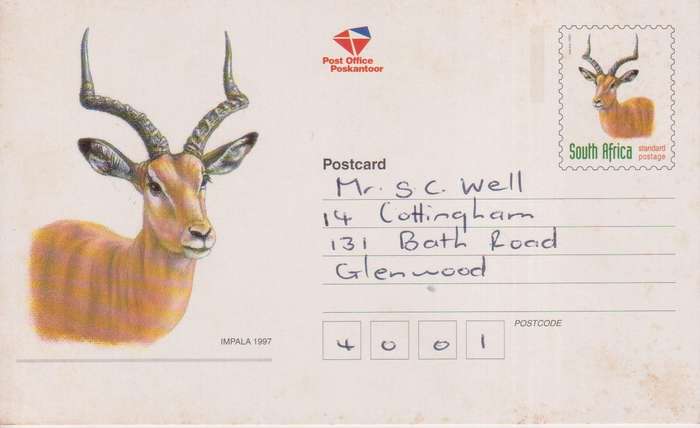 Post Office
Poskantoor
South Africa
standard
postage
Postcard
Mr. S C. Well
14 Cottingham
131 Bath Road
Glenwood
IMPALA 1997
POSTCODE
4 0 0 1